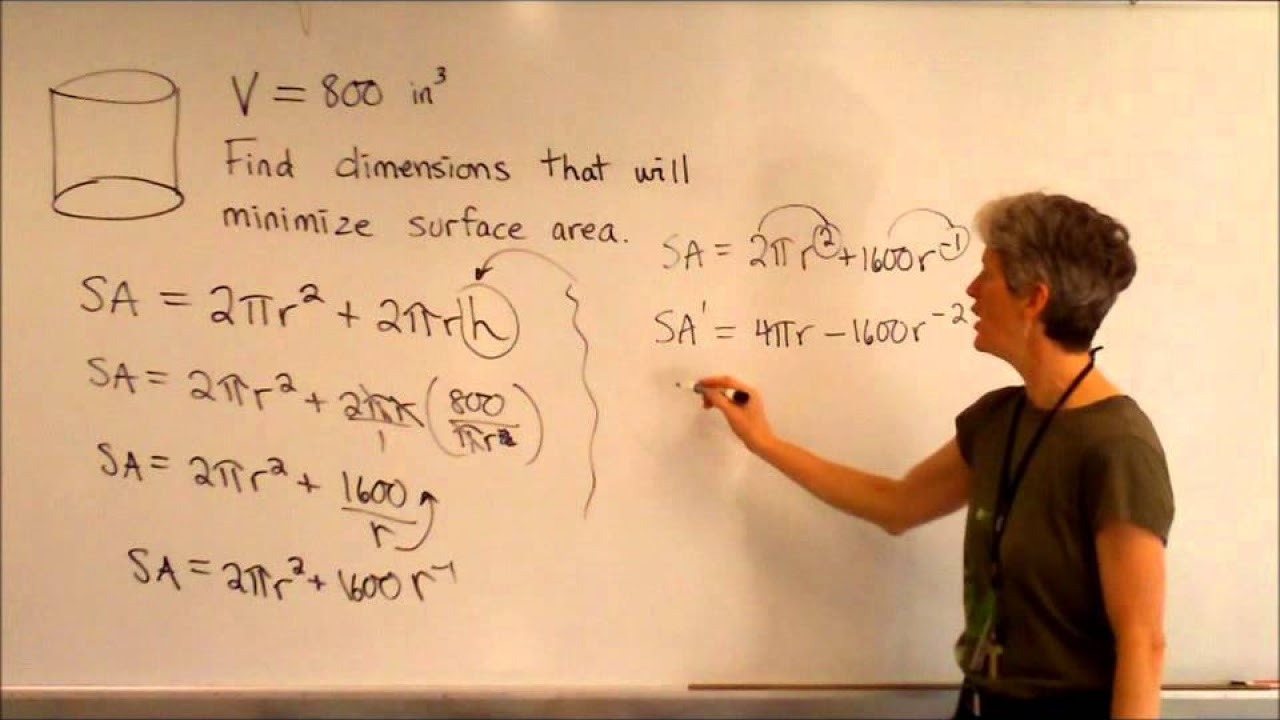 V = 800 in³
Find dimensions that will
minimize surface area.
SA = 2πr² + 2πrh
SA = 2πr² + 2πr/1 (800/πr²)
SA = 2πr² + 1600/r
SA = 2πr² + 1600r⁻¹
SA = 2πr² + 1600r⁻¹
SA' = 4πr − 1600r⁻²